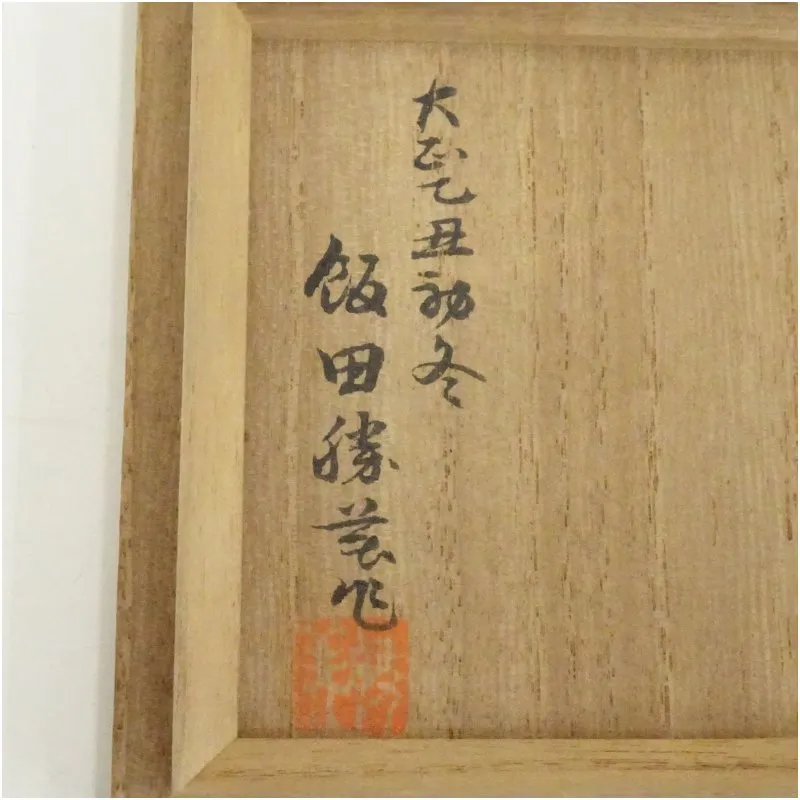 大正乙丑初冬
飯田勝作